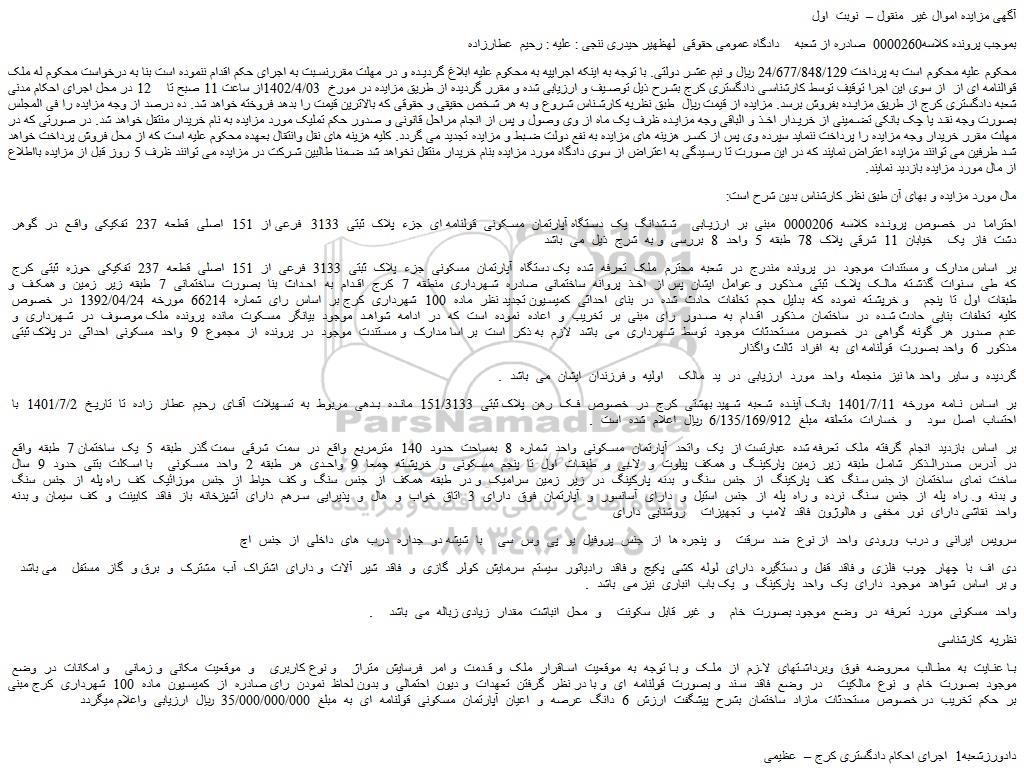 آگهی مزایده اموال غیر منقول – نوبت اول
بموجب پرونده کلاسه0000260 صادره از شعبه دادگاه عمومی حقوقی لهظهیر حیدری ننجی : علیه : رحیم عطارزاده
محکوم علیه محکوم است به پرداخت 24/677/848/129 ریال و نیم عشر دولتی. با توجه به اینکه اجراییه به محکوم علیه ابلاغ گردیده و در مهلت مقررنسبت به اجرای حکم اقدام ننموده است بنا به درخواست محکوم له ملک
قولنامه ای از از سوی این اجرا توقیف توسط کارشناسی دادگستری کرج بشرح ذیل توصیف و ارزیابی شده و مقرر گردیده از طریق مزایده در مورخ 1402/4/03از ساعت 11 صبح تا 12 در محل اجرای احکام مدنی
شعبه دادگستری کرج از طریق مزایده بفروش برسد. مزایده از قیمت ریال طبق نظریه کارشناس شروع و به هر شخص حقیقی و حقوقی که بالاترین قیمت را بدهد فروخته خواهد شد. ده درصد از وجه مزایده را فی المجلس
بصورت وجه نقد یا چک بانکی تضمینی از خریدار اخذ و الباقی وجه مزایده ظرف یک ماه از وی وصول و پس از انجام مراحل قانونی و صدور حکم تملیک مورد مزایده به نام خریدار منتقل خواهد شد. در صورتی که در
مهلت مقرر خریدار وجه مزایده را پرداخت ننماید سپرده وی پس از کسر هزینه های مزایده به نفع دولت ضبط و مزایده تجدید می گردد. کلیه هزینه های نقل وانتقال بعهده محکوم علیه است که از محل فروش پرداخت خواهد
شد طرفین می توانند مزایده اعتراض نمایند که در این صورت تا رسیدگی به اعتراض از سوی دادگاه مورد مزایده بنام خریدار منتقل نخواهد شد ضمنا طالبین شرکت در مزایده می توانند ظرف 5 روز قبل از مزایده بااطلاع
از مال مورد مزایده بازدید نمایند.
مال مورد مزایده و بهای آن طبق نظر کارشناس بدین شرح است:
احتراما در خصوص پرونده کلاسه 0000206 مبنی بر ارزیابی ششدانگ یک دستگاه آپارتمان مسکونی قولنامه ای جزء پلاک ثبتی 3133 فرعی از 151 اصلی قطعه 237 تفکیکی واقع در گوهر
دشت فاز یک خیابان 11 شرقی پلاک 78 طبقه 5 واحد 8 بررسی و به شرح ذیل می باشد
بر اساس مدارک و مستندات موجود در پرونده مندرج در شعبه محترم ملک تعرفه شده یک دستگاه آپارتمان مسکونی جزء پلاک ثبتی 3133 فرعی از 151 اصلی قطعه 237 تفکیکی حوزه ثبتی کرج
که طی سنوات گذشته مالک پلاک ثبتی مذکور و عوامل ایشان پس از اخذ پروانه ساختمانی صادره شهرداری منطقه 7 کرج اقدام به احداث بنا بصورت ساختمانی 7 طبقه زیر زمین و همکف و
طبقات اول تا پنجم و خرپشته نموده که بدلیل حجم تخلفات حادث شده در بنای احداثی کمیسیون تجدید نظر ماده 100 شهرداری کرج بر اساس رای شماره 66214 مورخه 1392/04/24 در خصوص
کلیه تخلفات بنایی حادث شده در ساختمان مذکور اقدام به صدور رای مبنی بر تخریب و اعاده نموده است که در ادامه شواهد موجود بیانگر مسکوت مانده پرونده ملک موصوف در شهرداری و
عدم صدور هر گونه گواهی در خصوص مستحدثات موجود توسط شهرداری می باشد لازم به ذکر است بر اسا مدارک و مستندت موجود در پرونده از مجموع 9 واحد مسکونی احداثی در پلاک ثبتی
مذکور 6 واحد بصورت قولنامه ای به افراد ثالث واگذار
گردیده و سایر واحد ها نیز منجمله واحد مورد ارزیابی در ید مالک اولیه و فرزندان ایشان می باشد .
بر اساس نامه مورخه 1401/7/11 بانک آینده شعبه شهید بهشتی کرج در خصوص فک رهن پلاک ثبتی 151/3133 مانده بدهی مربوط به تسهیلات آقای رحیم عطار زاده تا تاریخ 1401/7/2 با
احتساب اصل سود و خسارات متعلقه مبلغ 6/135/169/912 ریال اعلام شده است .
بر اساس بازدید انجام گرفته ملک تعرفه شده عبارتست از یک واتحد آپارتمان مسکونی واحد شماره 8 بمساحت حدود 140 مترمربع واقع در سمت شرقی سمت گذر طبقه 5 یک ساختمان 7 طبقه واقع
در آدرس صدرالذکر شامل طبقه زیر زمین پارکینگ و همکف پیلوت و لابی و طبقات اول تا پنجم مسکونی و خرپشته جمعا 9 واحدی هر طبقه 2 واحد مسکونی با اسکلت بتنی حدود 9 سال
ساخت نمای ساختمان از جنس سنگ کف پارکینگ از جنس سنگ و بدنه پارکینگ در زیر زمین سرامیک و در طبقه همکف از جنس سنگ و کف حیاط از جنس موزائیک کف راه پله از جنس سنگ
و بدنه و. راه پله از جنس سنگ نرده و راه پله از جنس استیل و دارای آسانسور و آپارتمان فوق دارای 3 اتاق خواب و هال و پذیرایی سرهم دارای آشپزخانه باز فاقد کابینت و کف سیمان و بدنه
واحد نقاشی دارای نور مخفی و هالوژون فاقد لامپ و تجهیزات روشنایی دارای
سرویس ایرانی و درب ورودی واحد از نوع ضد سرقت و پنجره ها از جنس پروفیل یو پی وس سی با شیشه دو جداره درب های داخلی از جنس اچ
دی اف با چهار چوب فلزی و فاقد قفل و دستگیره دارای لوله کشی پکیج و فاقد رادیاتور سیستم سرمایش کولر گازی و فاقد شیر آلات و دارای اشتراک آب مشترک و برق و گاز مستقل می باشد
و بر اساس شواهد موجود دارای یک واحد پارکینگ و یک باب انباری نیز می باشد .
واحد مسکونی مورد تعرفه در وضع موجود بصورت خام و غیر قابل سکونت و محل انباشت مقدار زیادی زباله می باشد .
نظریه کارشناسی
با عنایت به مطالب معروضه فوق وبرداشتهای لازم از ملک و با توجه به موقعیت اسقرار ملک و قدمت و امر فرسایش متراژ و نوع کاربری و موقعیت مکانی و زمانی و امکانات در وضع
موجود بصورت خام و نوع مالکیت در وضع فاقد سند و بصورت قولنامه ای و با در نظر گرفتن تعهدات و دیون احتمالی و بدون لحاظ نمودن رای صادره از کمیسیون ماده 100 شهرداری کرج مبنی
بر حکم تخریب در خصوص مستحدثات مازاد ساختمان بشرح پیشگفت ارزش 6 دانگ عرصه و اعیان آپارتمان مسکونی قولنامه ای به مبلغ 35/000/000/000 ریال ارزیابی واعلام میگردد
دادورزشعبه1 اجرای احکام دادگستری کرج – عظیمی
ParsNamadData
پایگاه اطلاع رسانی مناقصه و مزایده
۰۲۱-۸۸۳۴۹۶۷۰-۵